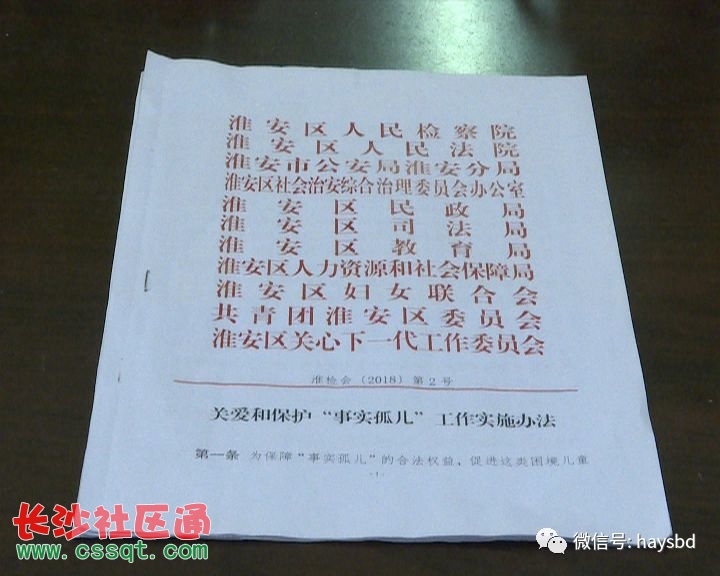 淮安区人民检察院
淮安区人民法院
淮安市公安局淮安分局
淮安区社会治安综合治理委员会办公室
淮安区民政局
淮安区司法局
淮安区教育局
淮安区人力资源和社会保障局
淮安区妇女联合会
共青团淮安区委员会
淮安区关心下一代工作委员会
淮检会〔2018〕第2号
关爱和保护“事实孤儿”工作实施办法
第一条 为保障“事实孤儿”的合法权益，促进这类困境儿童
-1-
长沙社区通
www.cssqt.com
微信号: haysbd